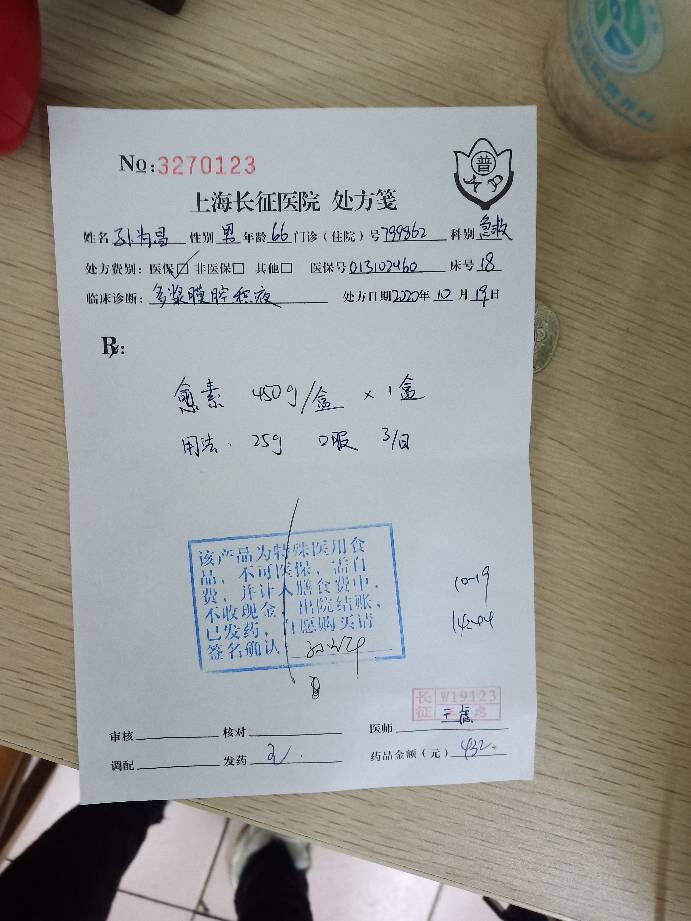 No:3270123
普
上海长征医院 处方笺
姓名 性别 男 年龄 66 门诊（住院）号 799362 科别 急救
处方费别：医保☑ 非医保□ 其他□ 医保号 013102460 床号 18
临床诊断：多浆膜腔积液 处方日期 2020年 10 月 19日
R:
愈素 450g/盒 × 1盒
用法：25g 口服 3/日
该产品为特殊医用食
品，不可医保，需自
费，并计入膳食费中，
不收现金，出院结账，
已发药，自愿购买请
签名确认
10-19
长征 W19123
审核 核对 医师
调配 发药 药品金额（元）432-